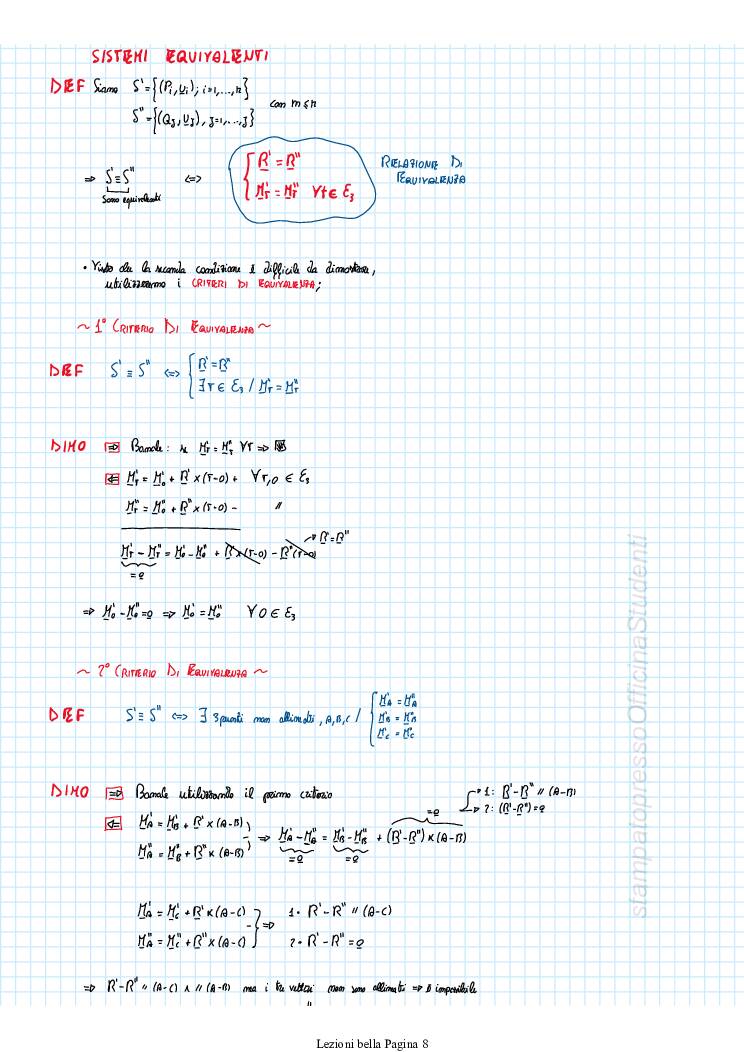 SISTEMI EQUIVALENTI
DEF Siano S' = {(Pi, vi); i=1,...,n}
S" = {(QJ, UJ), J=1,...,J} con m ≤ n
⇒ S' ≡ S" ⇔ { R' = R" RELAZIONE DI
sono equivalenti M'T = M"T ∀T ∈ E3 EQUIVALENZA
• Visto che la seconda condizione è difficile da dimostrare,
utilizzeremo i CRITERI DI EQUIVALENZA;
~ 1° CRITERIO DI EQUIVALENZA ~
DEF S' ≡ S" ⇔ { R' = R"
∃ T ∈ E3 / M'T = M"T
DIMO ⇒ Banale: se M'T = M"T ∀T ⇒
⇐ M'T = M'O + R' × (T-O) + ∀T,O ∈ E3
M"T = M"O + R" × (T-O) - //
M'T - M"T = M'O - M"O + R' × (T-O) - R" (T-O) → R' = R"
= 0
⇒ M'O - M"O = 0 ⇒ M'O = M"O ∀O ∈ E3
~ 2° CRITERIO DI EQUIVALENZA ~
DEF S' ≡ S" ⇔ ∃ 3 punti non allineati, A, B, C / { M'A = M"A
M'B = M"B
M'C = M"C
DIMO ⇒ Banale utilizzando il primo criterio
→ 1: R' - R" // (A-B)
→ 2: (R' - R") = 0
⇐ M'A = M'B + R' × (A-B)
M"A = M"B + R" × (A-B) } ⇒ M'A - M"A = M'B - M"B + (R' - R") × (A-B)
= 0 = 0 = 0
M'A = M'C + R' × (A-C) } ⇒ 1• R' - R" // (A-C)
M"A = M"C + R" × (A-C) 2• R' - R" = 0
⇒ R' - R" // (A-C) ∧ // (A-B) ma i tre vettori non sono allineati ⇒ è impossibile
stampatopressoOfficinaStudenti
Lezioni bella Pagina 8